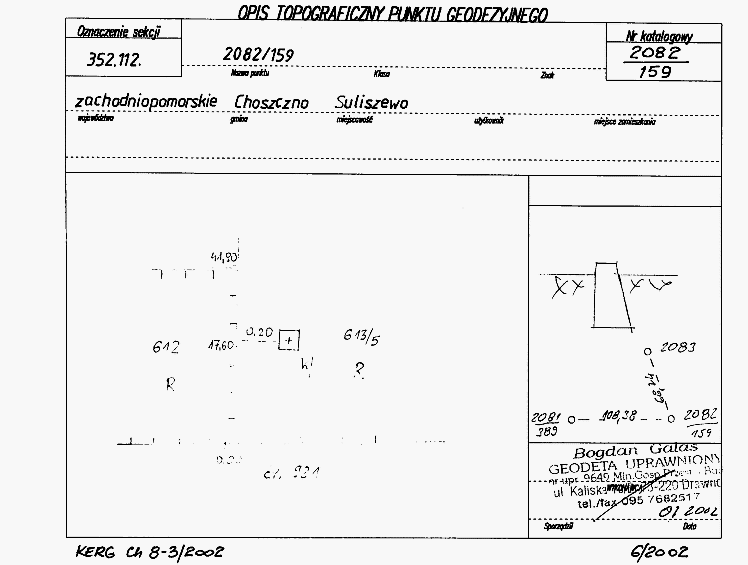 OPIS TOPOGRAFICZNY PUNKTU GEODEZYJNEGO
Oznaczenie sekcji
352.112.
2082/159
Nazwa punktu Klasa Znak
Nr katalogowy
2082
159
zachodniopomorskie Choszczno Suliszewo
województwo gmina miejscowość użytkownik miejsce zamieszkania
41,90
0.20
612 17,60 613/5
R R
0.00
2083
2081 108,38 2082
389 159
Bogdan Galas
GEODETA UPRAWNIONY
nr upr. 9649 Min.Gosp.Przest.
ul Kaliska 73-220 Drawno
tel./fax 095 7682517
01 2002
Sporządził Data
KERG Ch 8-3/2002 6/2002